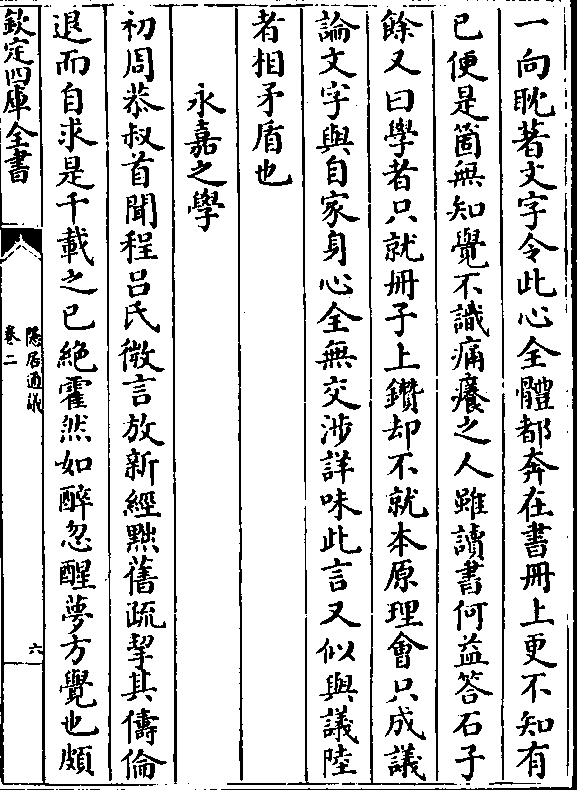 一向耽著文字令此心全體都奔在書冊上更不知有
已便是箇無知覺不識痛癢之人雖讀書何益答石子
餘又曰學者只就冊子上鑽却不就本原理會只成議
論文字與自家身心全無交涉詳味此言又似與議陸
者相矛盾也
永嘉之學
初周恭叔首聞程呂氏微言放新經黜舊疏挈其儔倫
退而自求是千載之已絶霍然如醉忽醒夢方覺也頗
欽定四庫全書
隱居通議
卷二
六